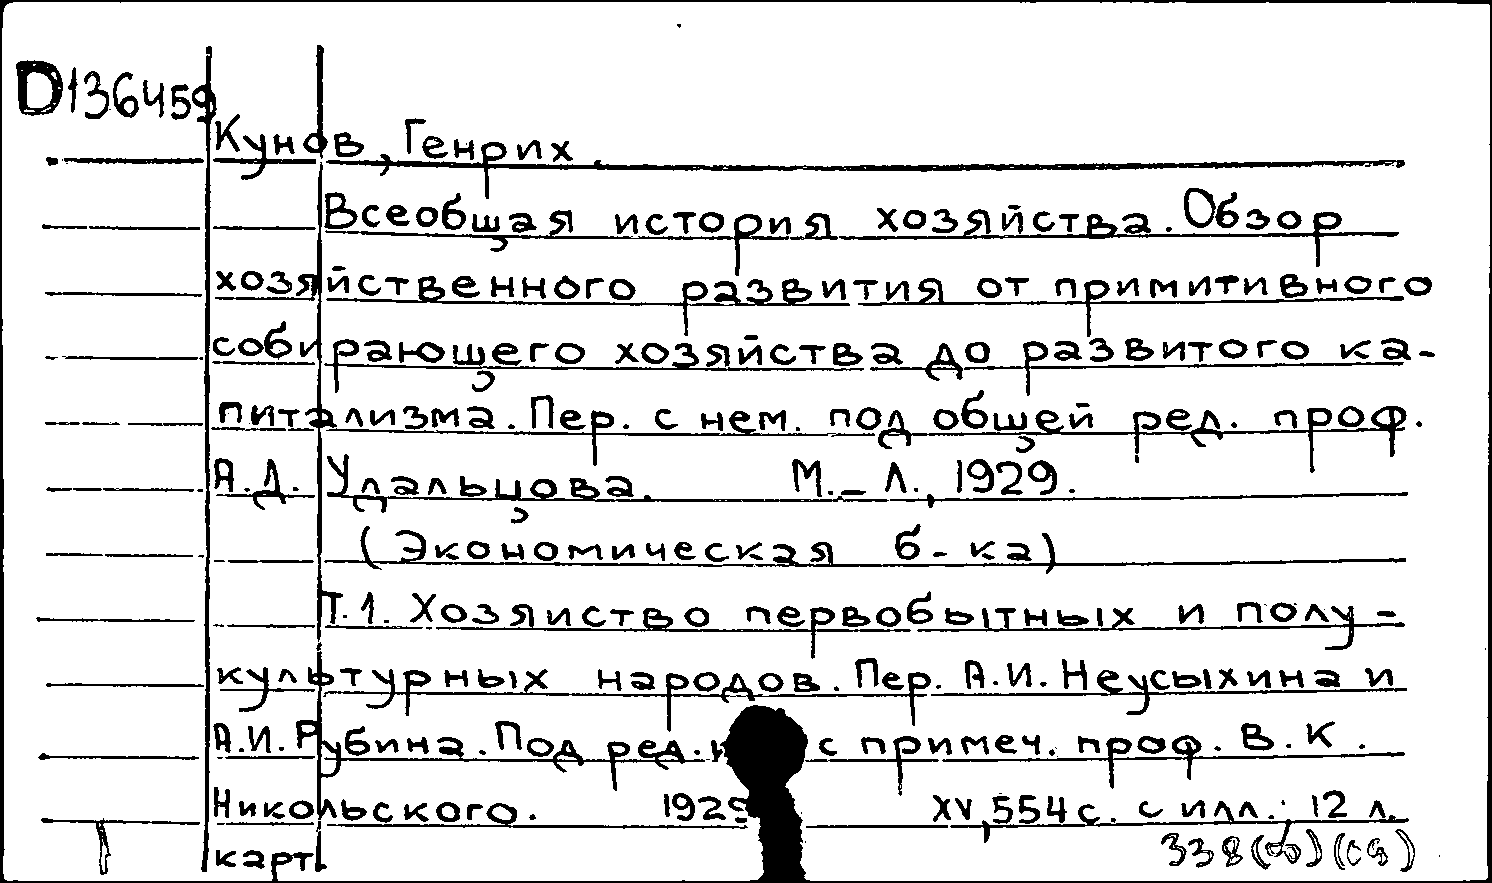 D136459
Кунов, Генрих.
Всеобщая история хозяйства. Обзор
хозяйственного развития от примитивного
собирающего хозяйства до развитого ка-
питализма. Пер. с нем. под общей ред. проф.
А.Д. Удальцова. М.–Л., 1929.
(Экономическая б-ка)
Т.1. Хозяиство первобытных и полу-
культурных народов. Пер. А.И. Неусыхина и
А.И. Рубина. Под ред. и с примеч. проф. В.К.
Никольского. 1929 XV, 554 с. с илл.; 12 л.
карт.